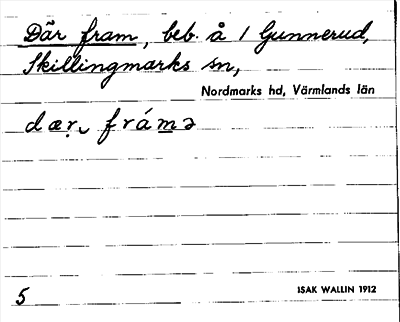 Där fram, beb. å 1 Gunnerud,
Skillingmarks sn,
Nordmarks hd, Värmlands län
dær̥ fráma̲ə
5
ISAK WALLIN 1912